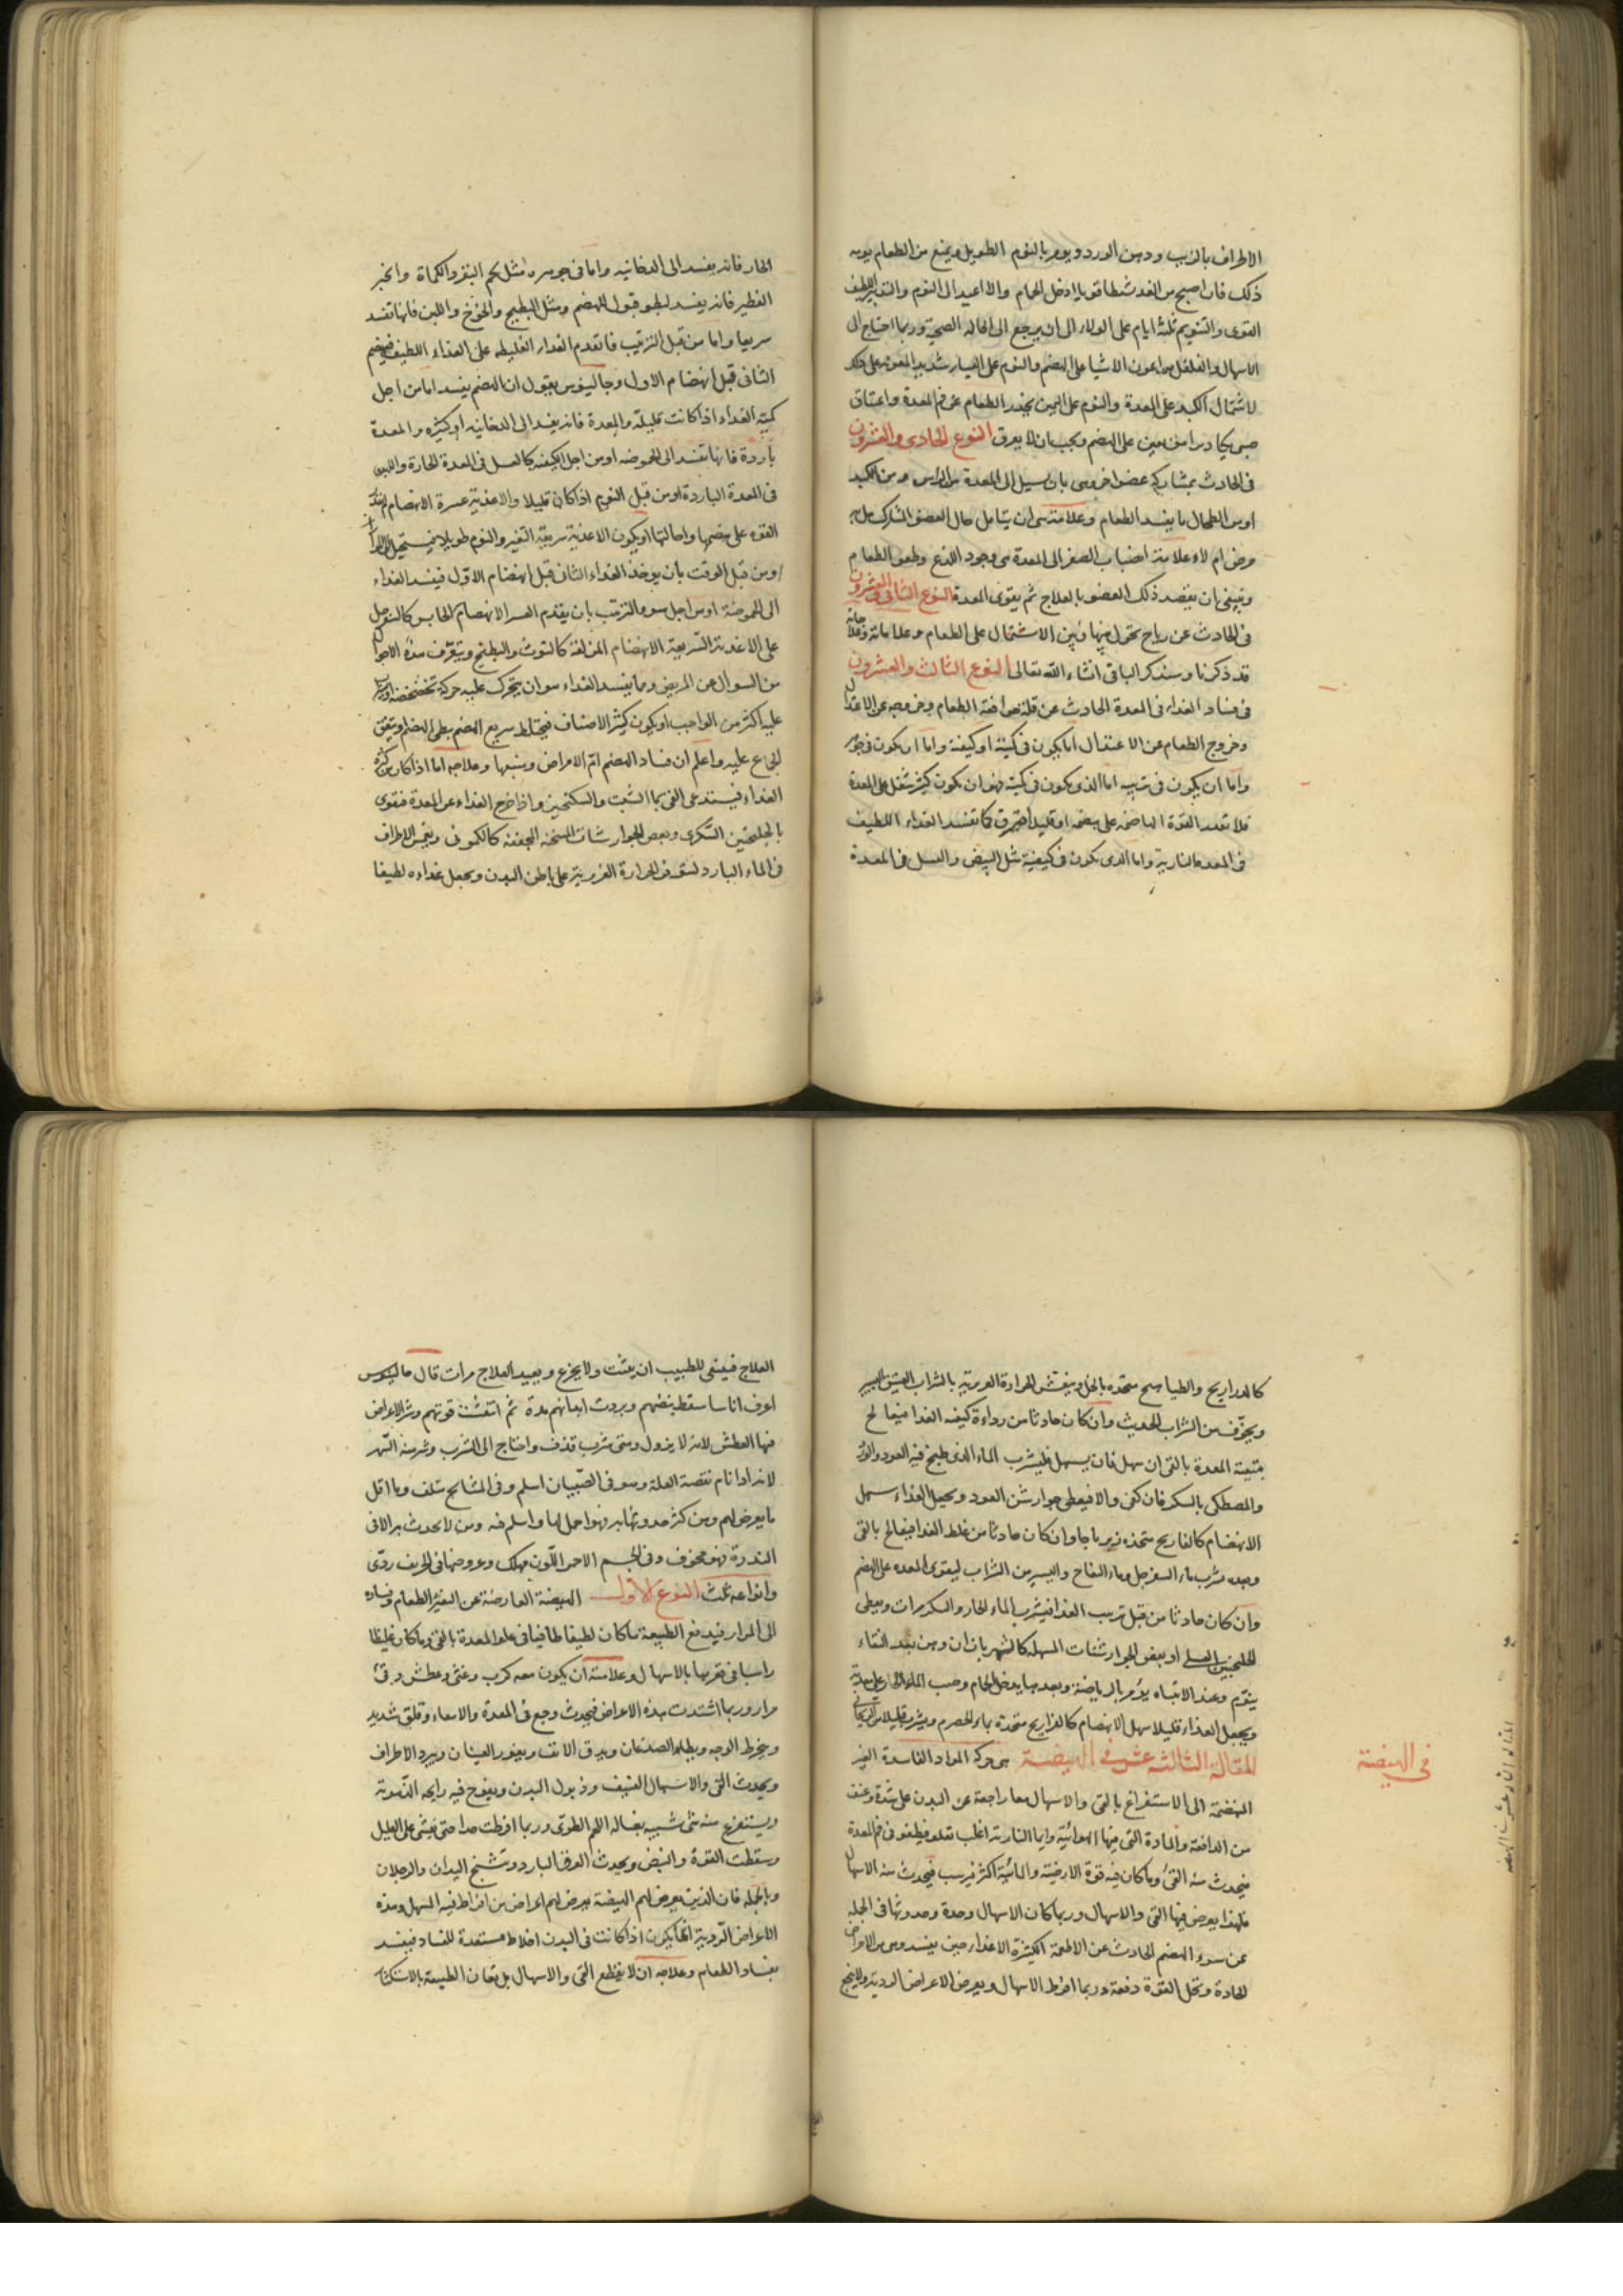 الاطراف بالزيت ودهن الورد ويومر بالنوم الطويل ويمنع من الطعام يومه
ذلك فان اصبح من الغد نشطا قويا ادخل الحمام والا اعيد الى النوم والتدبير اللطيف
القوى والتنويم ثلثة ايام على الولاء الى ان يرجع الى الحالة الصحية وربما احتاج الى
الاسهال والفلفل من اعون الاشيا على الهضم والنوم على اليسار شديد المعونة على ذلك
لاشتمال الكبد على المعدة والنوم على اليمين يحدر الطعام عن فم المعدة واعتناق
صبى يكاد يراهق معين على الهضم ويجب ان لا يعرق النوع الحادى والعشرون
فى الحادث بمشاركة عضو اخر وهى بان يسيل الى المعدة من الراس ومن الكبد
اومن الطحال ما يفسد الطعام وعلامته هى ان يتامل حال العضو المشارك هل به
مرض ام لا وعلامة انصباب الصفرا الى المعدة هى وجود اللذع وطفو الطعام
وينبغى ان يقصد ذلك العضو بالعلاج ثم يقوى المعدة النوع الثانى والعشرون
فى الحادث عن رياح تحول بينها وبين الاشتمال على الطعام وعلاماته وعلاجاته
قد ذكرنا وسنذكر الباقى انشاء الله تعالى النوع الثالث والعشرون
فى فساد الغذاء فى المعدة الحادث عن قلة موافقة الطعام وخروجه عن الاعتدال
وخروج الطعام عن الاعتدال اما يكون فى كميته او كيفيته واما ان يكون فى جوهره
واما ان يكون فى ترتيبه اما الذى يكون فى كميته فهو ان يكون كثير يثقل على المعدة
فلا تقدر القوة الهاضمة على هضمه او قليل احترق كما تفسد الغذاء اللطيف
فى المعدة النارية واما الذى يكون فى كيفيته مثل البيض والعسل فى المعدة
الحار فانه يفسد الى الدخانيه واما فى جوهره مثل لحم البقر والكماة والخبز
الفطير فانه يفسد لبطو قبول الهضم ومثل البطيخ والخوخ واللبن فانها تفسد
سريعا واما من قبل الترتيب فاتقدم الغذاء الغليظ على الغذاء اللطيف فيهضم
الثانى قبل انهضام الاول وجالينوس يقول ان الهضم يفسد اما من اجل
كمية الغذاء اذا كانت قليلة والمعدة فانه يفسد الى الدخانيه او كثيره والمعدة
باردة فانها تفسد الى الحموضه او من اجل الكيفيه كالعسل فى المعدة الحارة واللبن
فى المعدة الباردة او من قبل النوم اذا كان قليلا والاغذية عسرة الانهضام لم تقدر
القوه على هضمها واحالتها او يكون الاغذية سريعة التغير والنوم طويلا فيستحيل الى المرار
او من قبل الوقت بان يوخذ الغداء الثانى قبل انهضام الاول فيفسد الغداء
الى الحموضة او من اجل سو الترتيب بان يقدم العسر الانهضام الحابس كالسفرجل
على الاغذية السريعة الانهضام المزلقة كالتوث والبطيخ ويتعرف هذه الاحوال
من السوال عن المريض ومما يفسد الغداء هو ان يتحرك عليه حركة تخضخضه او يشرب
عليه اكثر من الواجب او يكون كثير الاصناف فيختلط سريع الهضم ببطى الهضم او يتفق
الجماع عليه واعلم ان فساد الهضم ام الامراض ومنبعها وعلاجه اما اذا كان من كثرة
الغداء فيستدعى القى بما الشبت والسكنجبين واذا خرج الغذاء عن المعدة فقوى
بالجلنجبين السكرى وبعض الجوارشات المسخنه المجففه كالكمونى ويغمس الاطراف
فى الماء البارد لتتوفر الحرارة الغريزية على باطن البدن ويجعل غداءه لطيفا
كالدراريج والطياهيج متخذه بالخل وينعش الحرارة الغريزية بالشراب العتيق اليسير
ويخوف من الشراب الحديث وان كان حادثا من رداءة كيفيه الغدا فيعالج
بتنقية المعدة بالقى ان سهل فان لم يسهل فليشرب الماء الذى طبخ فيه العود والورد
والمصطكى بالسكر فان كفى والا فيعطى جوارشن العود ويجعل الغذاء سهل
الانهضام كالفراريج متخذه زيرباجا وان كان حادثا من غلظ الغدا فيعالج بالقى
وبعده بشرب ماء السفرجل وماء التفاح واليسير من الشراب ليقوى المعده على الهضم
وان كان حادثا من قبل ترتيب الغدا فيشرب الماء الحار والسكر مرات ويعطى
الجلنجبين العسلى او بعض الجوارشنات المسهله كالشهرياران ومن بعد النقاء
ينوم وعند الانتباه يؤمر بالرياضة وبعدها يدخل الحمام وصب الماء الحار على معدته
ويجعل الغذاء قليلا سهل الانهضام كالفراريج متخذة بماء الحصرم ويشرب قليلا من الريحانى
المقالة الثالثة عشر فى الهيضة هى حركة المواد الفاسدة الغير
المنهضمة الى الاستفراغ بالقى والاسهال معا راجعة عن البدن على شدة وعنف
من الدافعة والمادة التى فيها الهوائية واما النارية اغلب تعلو فيطفو فى فم المعدة
فيحدث منه القئ وما كان فيه قوة الارضية والمائية اكثر فيرسب فيحدث منه الاسهال
فلهذا يعرض فيها القى والاسهال وربما كان الاسهال وحدة وحدوثها فى الجملة
عن سوء الهضم الحادث عن الاطعمة الكثيرة الاغذا حين يفسد وهى من الامراض
الحادة وتحل القوة دفعة وربما افرط الاسهال ويعرض الاعراض الردية ولا ينجح
فى الهيضة
العلاج فينبغى للطبيب ان يثبت ولا يجزع ويعيد العلاج مرات قال جالينوس
اعرف اناسا سقط نبضهم وبردت ابدانهم مدة ثم انتعشت قوتهم وشر الاعراض
فيها العطش لانه لا يزول ومتى شرب قذف واحتاج الى الشرب وشر منه السهر
لانه اذا نام نقصة العلة وهو فى الصبيان اسلم وفى المشايخ متلف وما اقل
ما يعرض لهم ومن كثر حدوثها به فهو احمل لها واسلم فيه ومن لا يحدث به الا فى
الندرة فهو مخوف وفى الجسم الاحمر اللون مهلك وعروضها فى الخريف ردى
وانواعه ثلث النوع الاول الهيضة العارضة عن التغير الطعام وفساده
الى المرار فيدفع الطبيعة ماكان لطيفا طافيا فى علو المعدة بالقى وماكان غليظا
راسبا فى قعرها بالاسهال وعلامته ان يكون معه كرب وغثى وعطش وقئ
مرار وربما اشتدت هذه الاعراض فيحدث وجع فى المعدة والامعاء وقلق شديد
وينخرط الوجه ويطله الصدغان ويدق الانف ويغور العينان ويبرد الاطراف
ويحدث القى والاسهال العنيف وذبول البدن ويفوح فيه رايحه الدموية
ويستفرغ منه شى شبيه بغسالة اللحم الطرى وربما افرطت جدا حتى يغشى على العليل
وسقطت القوة والنبض ويحدث العرق البارد وتشنج اليدان والرجلان
وبالجملة فان الذين يعرض لهم الهيضة يعرض لهم اعراض من افراط فيه المسهل وهذه
الاعراض الردية انما يكون اذا كانت فى البدن اخلاط مستعدة للفساد فيفسد
بفساد الطعام وعلاجه ان لا يقطع القى والاسهال بل تعان الطبيعة بالاستكثار